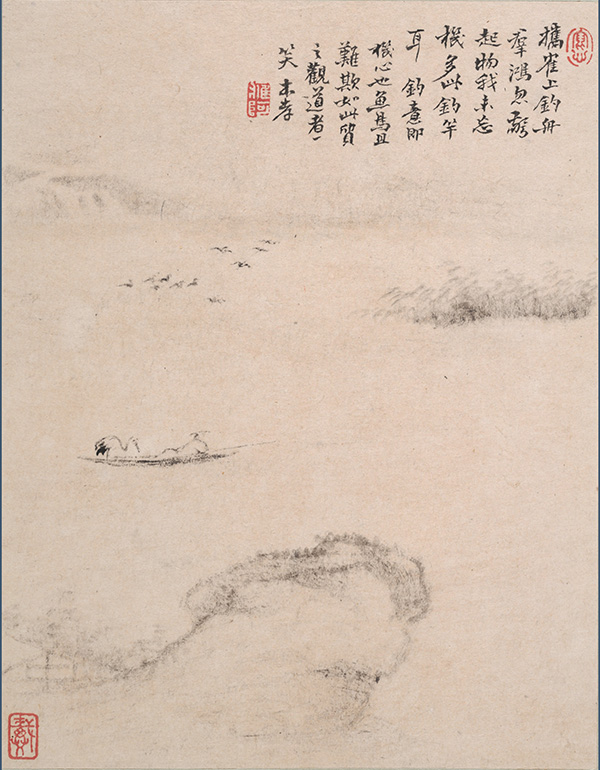 攜隺上釣舟
羣鴻忽驚
起物我未忘
機多此釣竿
耳 釣意即
機心也魚鳥且
難欺如此質
之觀道者一
笑 本孝